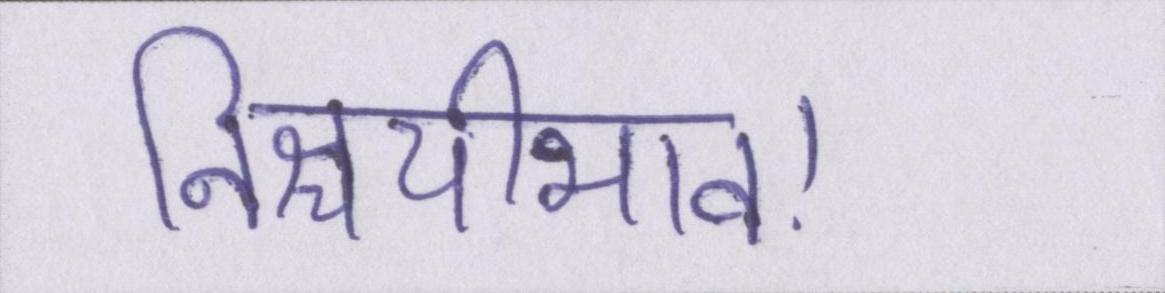 निश्चयीभाव!